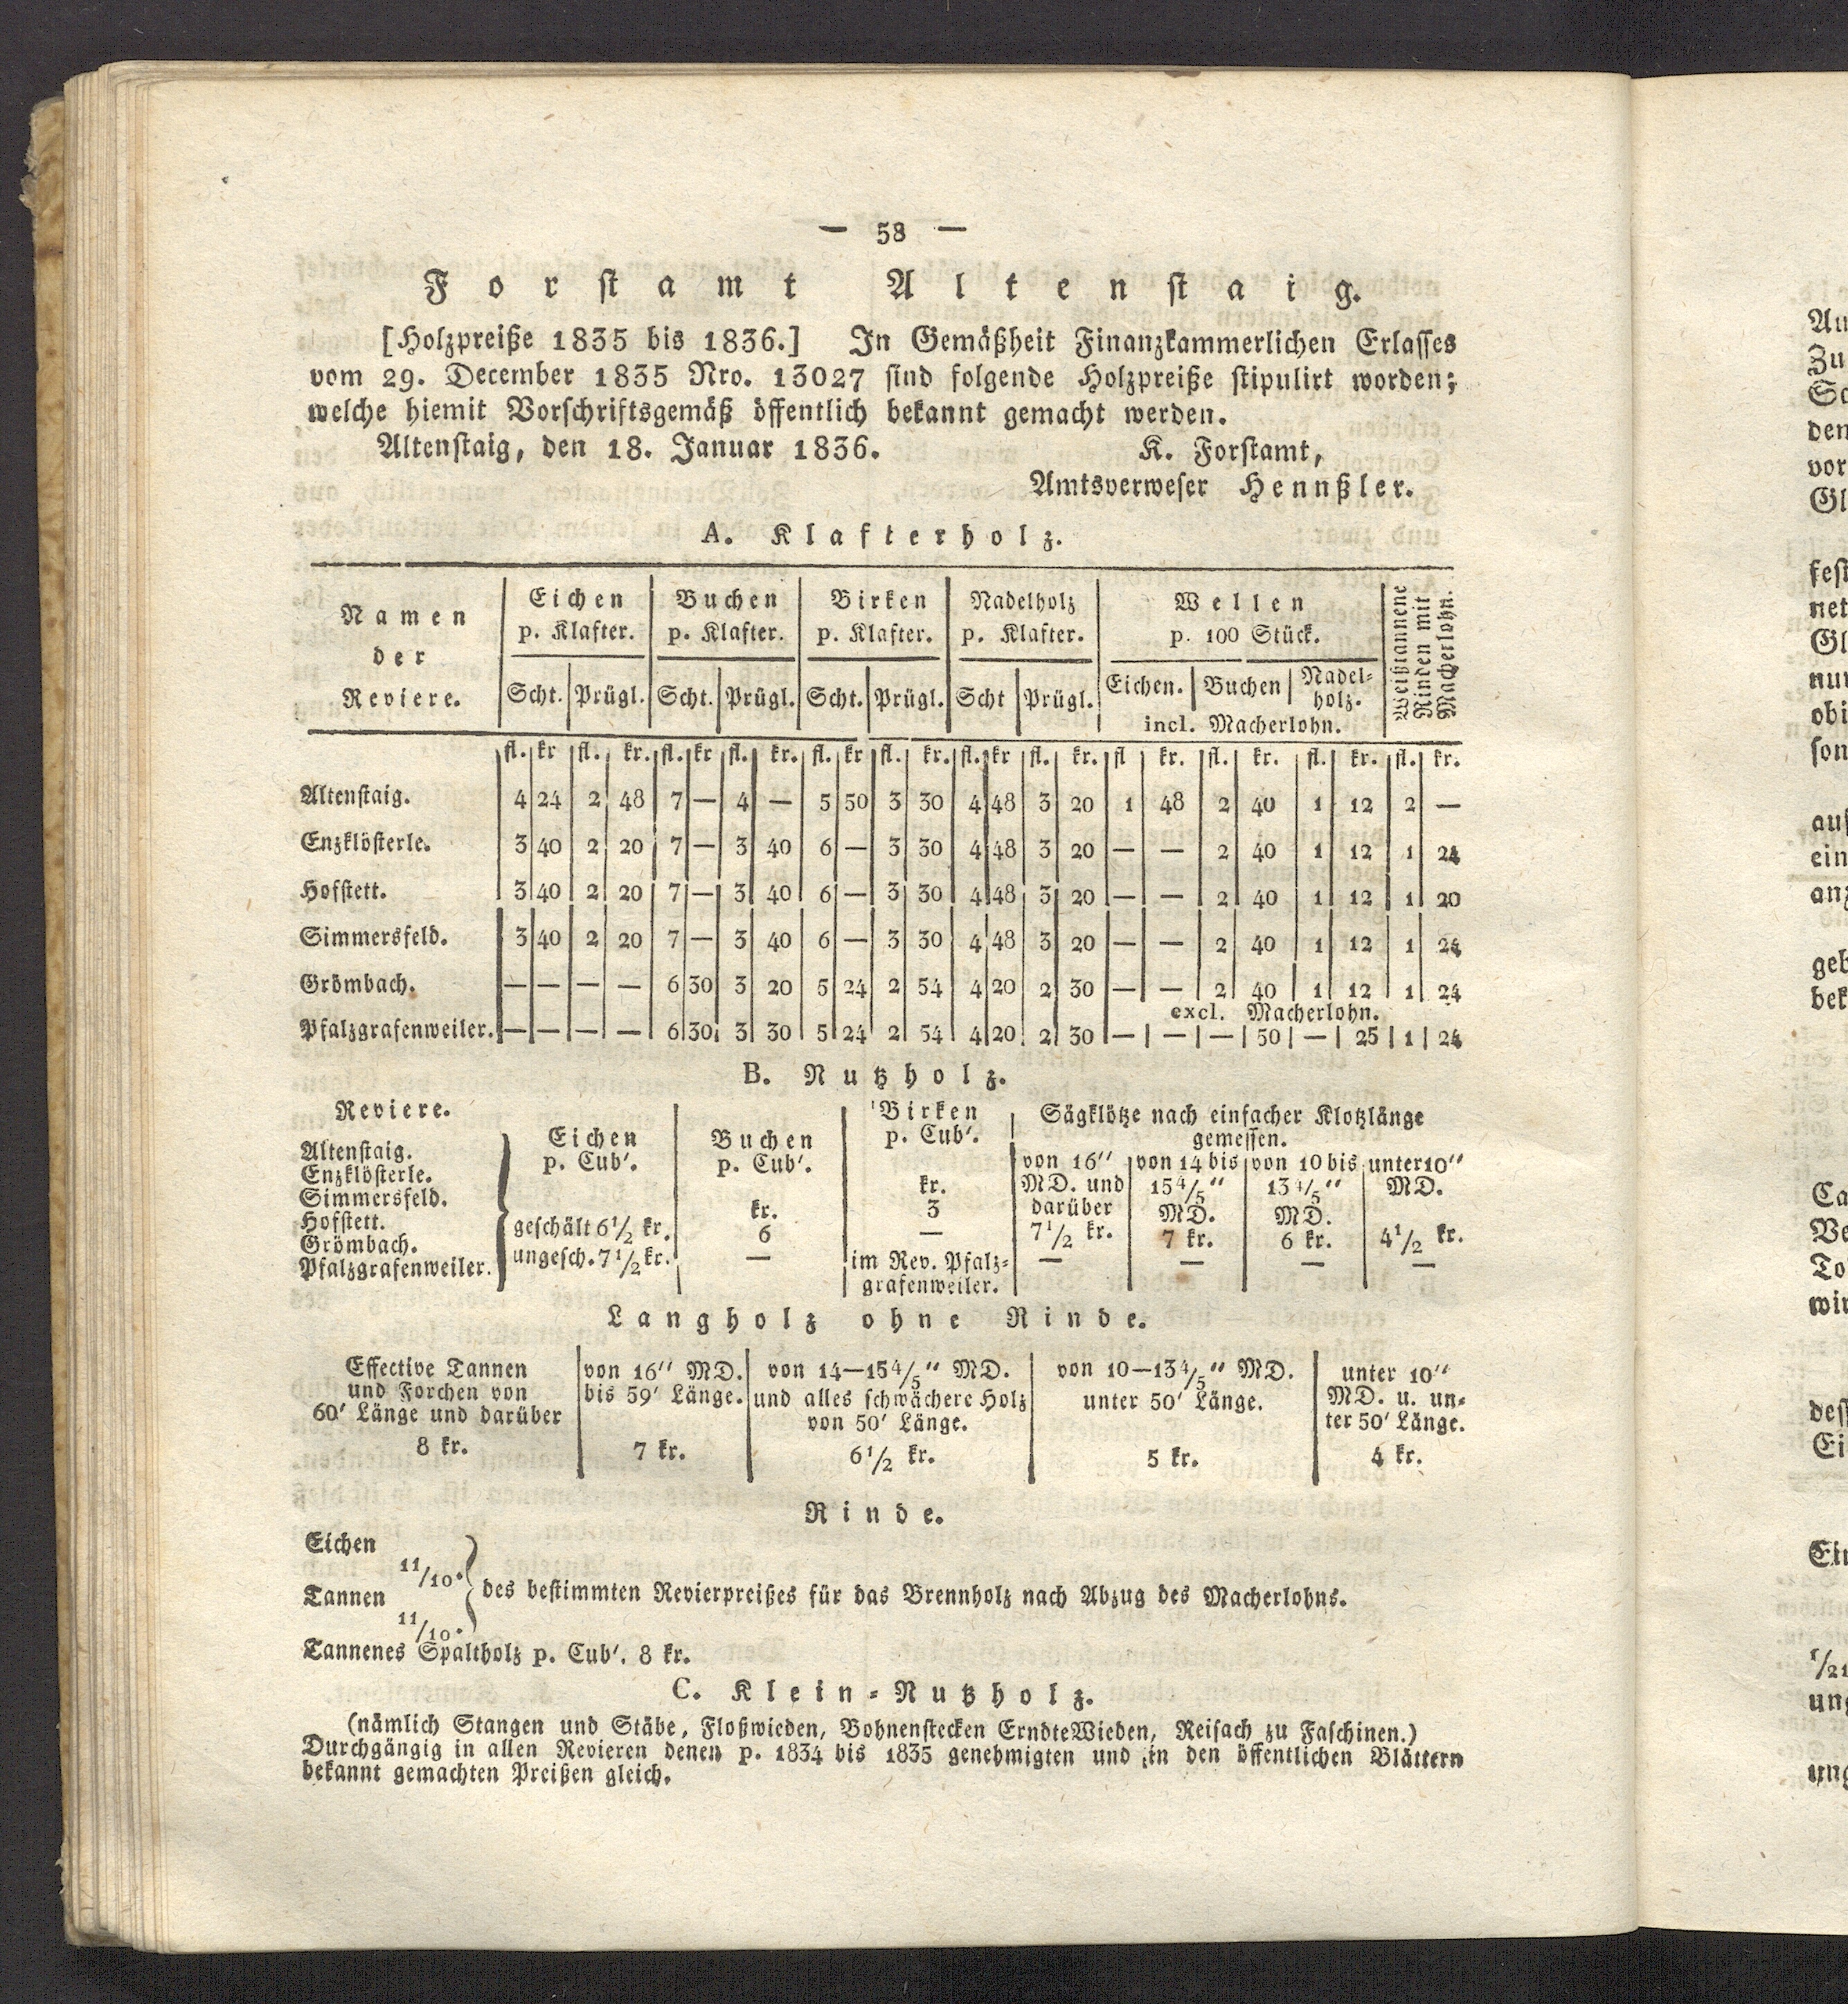 — 58 —
Forstamt Altenstaig.
[Holzpreiße 1835 bis 1836.] In Gemäßheit Finanzkammerlichen Erlasses
vom 29. December 1835 Nro. 13027 sind folgende Holzpreiße stipulirt worden;
welche hiemit Vorschriftsgemäß öffentlich bekannt gemacht werden.
Altenstaig, den 18. Januar 1836. K. Forstamt,
Amtsverweser Hennßler.
A. Klafterholz.
Namen der Reviere. | Eichen p. Klafter. | Buchen p. Klafter. | Birken p. Klafter. | Nadelholz p. Klafter. | Wellen p. 100 Stück. | Weißtannene Rinden mit Macherlohn.
Scht. | Prügl. | Scht. | Prügl. | Scht. | Prügl. | Scht | Prügl. | Eichen. | Buchen | Nadel-holz.
incl. Macherlohn.
fl. kr fl. kr. fl. kr fl. kr. fl. kr fl. kr. fl. kr fl. kr. fl kr. fl. kr. fl. kr. fl. kr.
Altenstaig. 4 24 2 48 7 — 4 — 5 50 3 30 4 48 3 20 1 48 2 40 1 12 2 —
Enzklösterle. 3 40 2 20 7 — 3 40 6 — 3 30 4 48 3 20 — — 2 40 1 12 1 24
Hofstett. 3 40 2 20 7 — 3 40 6 — 3 30 4 48 3 20 — — 2 40 1 12 1 20
Simmersfeld. 3 40 2 20 7 — 3 40 6 — 3 30 4 48 3 20 — — 2 40 1 12 1 24
Grömbach. — — — — 6 30 3 20 5 24 2 54 4 20 2 30 — — 2 40 1 12 1 24
excl. Macherlohn.
Pfalzgrafenweiler. — — — — 6 30 3 30 5 24 2 54 4 20 2 30 — — — 50 — 25 1 24
B. Nutzholz.
Reviere.
Altenstaig.
Enzklösterle.
Simmersfeld.
Hofstett.
Grömbach.
Pfalzgrafenweiler.
Eichen
p. Cub'.
geschält 6 1/2 kr.
ungesch. 7 1/2 kr.
Buchen
p. Cub'.
kr.
6
—
Birken
p. Cub'.
kr.
3
—
im Rev. Pfalz-
grafenweiler.
Sägklötze nach einfacher Klotzlänge
gemessen.
von 16''
MD. und
darüber
7 1/2 kr.
—
von 14 bis
15 4/5 ''
MD.
7 kr.
—
von 10 bis
13 4/5 ''
MD.
6 kr.
—
unter 10''
MD.
4 1/2 kr.
—
Langholz ohne Rinde.
Effective Tannen
und Forchen von
60' Länge und darüber
8 kr.
von 16'' MD.
bis 59' Länge.
7 kr.
von 14—15 4/5 '' MD.
und alles schwächere Holz
von 50' Länge.
6 1/2 kr.
von 10—13 4/5 '' MD.
unter 50' Länge.
5 kr.
unter 10''
MD. u. un-
ter 50' Länge.
4 kr.
Rinde.
Eichen
11/10.
Tannen
11/10.
des bestimmten Revierpreißes für das Brennholz nach Abzug des Macherlohns.
Tannenes Spaltholz p. Cub'. 8 kr.
C. Klein-Nutzholz.
(nämlich Stangen und Stäbe, Floßwieden, Bohnenstecken ErndteWieden, Reisach zu Faschinen.)
Durchgängig in allen Revieren denen p. 1834 bis 1835 genehmigten und in den öffentlichen Blättern
bekannt gemachten Preißen gleich.